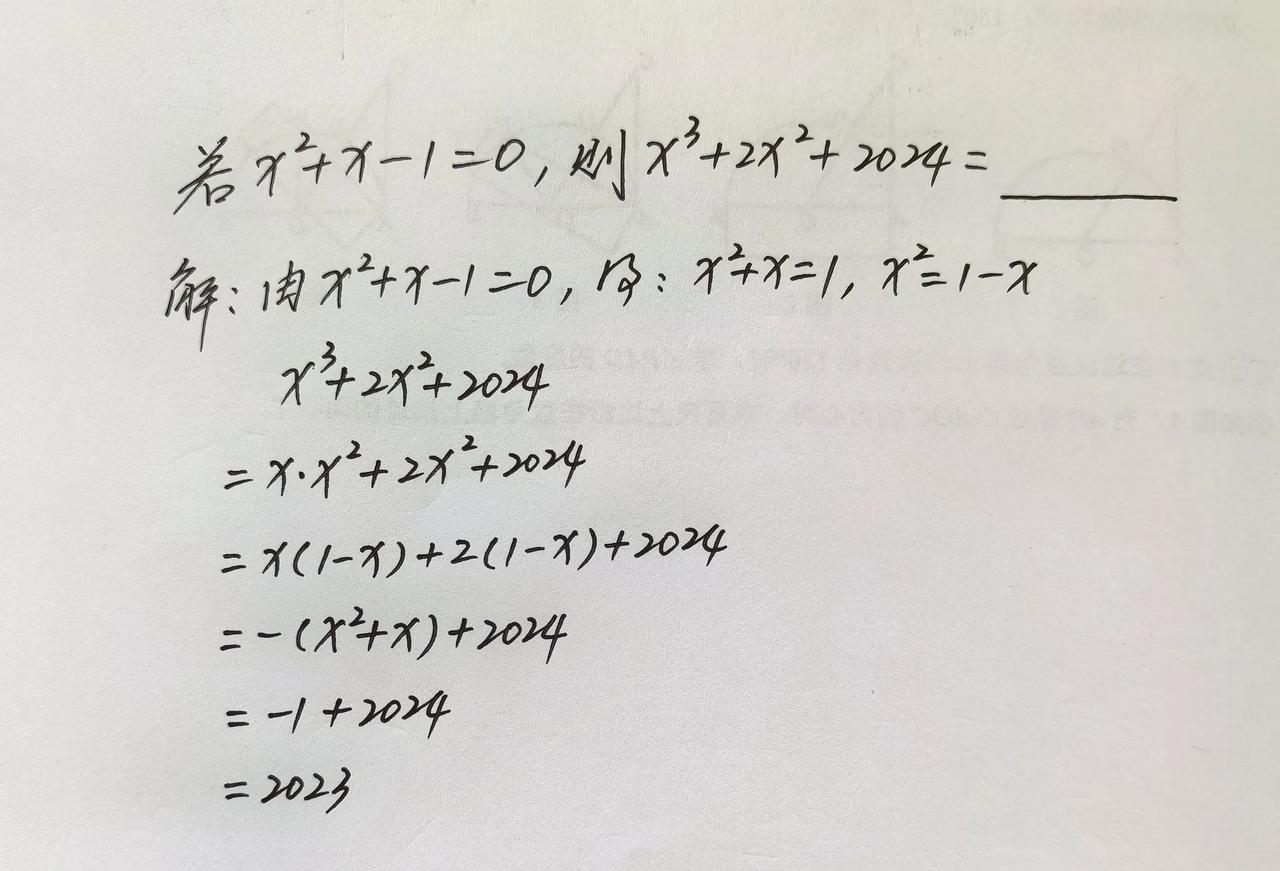 若x²+x-1=0,则x³+2x²+2024=______
解:由x²+x-1=0,得:x²+x=1,x²=1-x
x³+2x²+2024
=x·x²+2x²+2024
=x(1-x)+2(1-x)+2024
=-(x²+x)+2024
=-1+2024
=2023